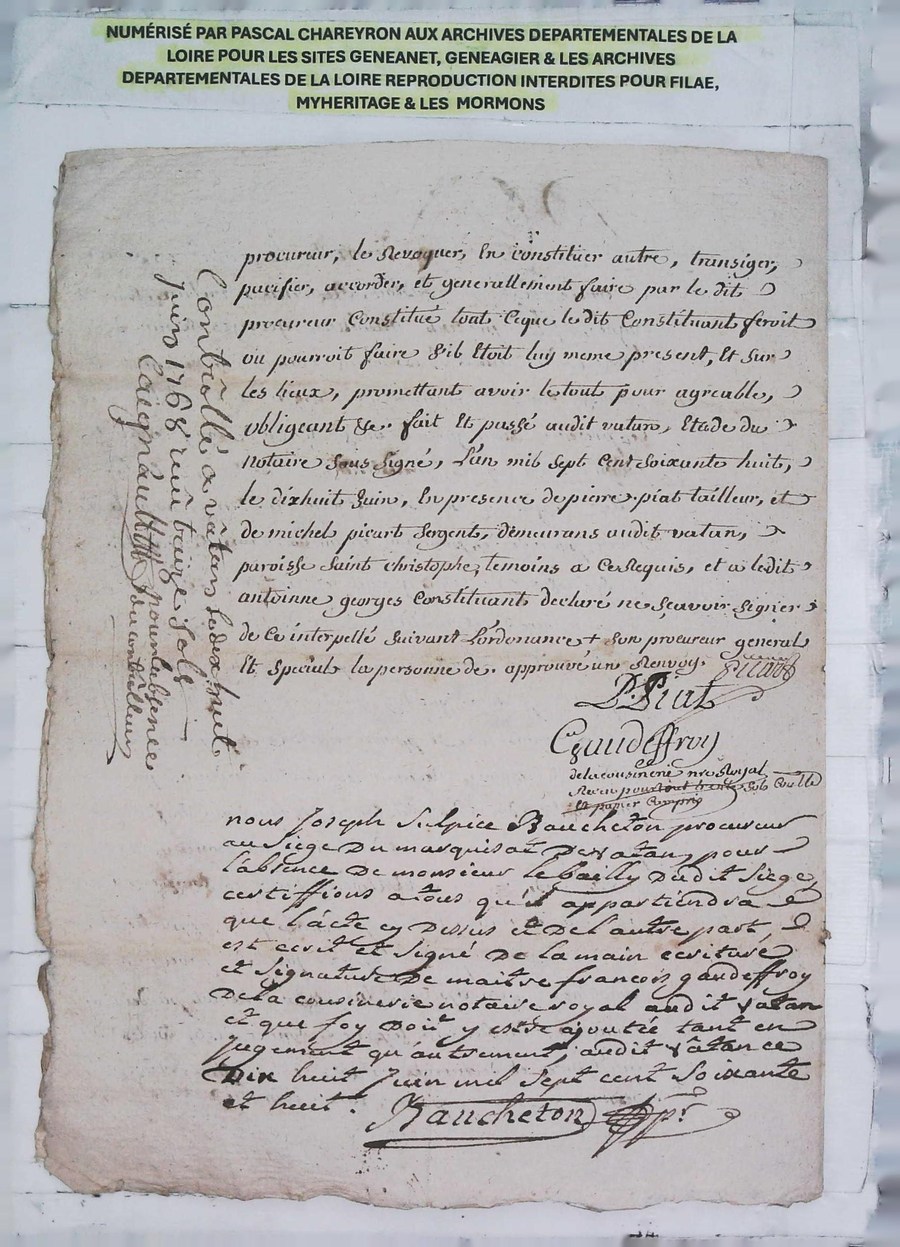 NUMÉRISÉ PAR PASCAL CHAREYRON AUX ARCHIVES DEPARTEMENTALES DE LA
LOIRE POUR LES SITES GENEANET, GENEAGIER & LES ARCHIVES
DEPARTEMENTALES DE LA LOIRE REPRODUCTION INTERDITES POUR FILAE,
MYHERITAGE & LES MORMONS
procureur, le Revoquer, En constituer autre, transiger,
pacifier, accorder, et generallement faire par le dit
procureur Constitué tout Ceque le dit Constituant feroit
ou pourroit faire S'il Etoit luy meme present, Et Sur
les lieux, promettant avoir le tout pour agreable,
obligeant &c. fait Et passé audit vatan, Etude du
Notaire Sous Signé, L'an mil Sept Cent Soixante huit,
le dixhuit Juin, En presence de pierre piat tailleur, et
de michel picart Sergent, demeurans audit vatan,
paroisse Saint Christophe, temoins a Ce Requis, et a ledit
antoinne georges Constituant declaré ne Sçavoir Signer
de Ce interpellé Suivant L'ordonance + Son procureur general
Et Special la personne de. approuvé un Renvoy. Picart
P. Piat
Gaudeffroy
dela cousinerie nre Royal
Receu pour tout trente Sols Conllé
Et papier Compris
nous Joseph Sulpice Baucheton procureur
au Siege Du marquisat De vatan, pour
L'absence De monsieur le bailly Dudit Siege,
certiffions a tous qu'il appartiendra
que L'acte cy Dessus et De l'autre part,
est ecrit et Signé De la main ecriture
et Signature De maitre francois gaudeffroy
De la cousinerie notaire royal audit vatan
et que foy Doit y estre ajoutée tant en
Jugement qu'autrement, audit vâtan ce
Dix huit Juin mil Sept cent Soixante
et huit. Baucheton pr.
Controllé a vâtan le dix huit
Juin 1768 reçu treize sols
Caignault pour labsence
du controlleur